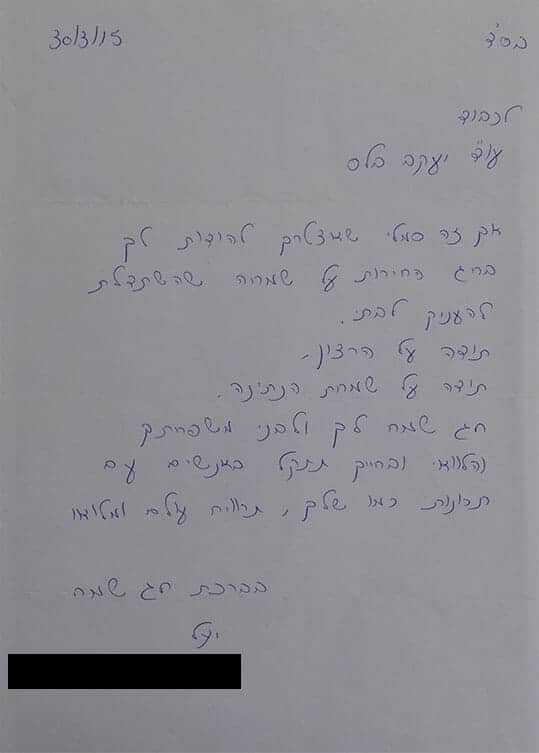 בס"ד
30/3/15
לכבוד
עו"ד יעקב בלס
אך זה סמלי שאצטרך להודות לך
בחג החירות על שמחה שהשתדלת
להעניק לבתי.
תודה על הרצון,
תודה על שמחת הנתינה.
חג שמח לך ולבני משפחתך
והלוואי ובחייך תתקל באנשים עם
תכונות כמו שלך, תרוויח עולם ומלואו
בברכת חג שמח
יעל